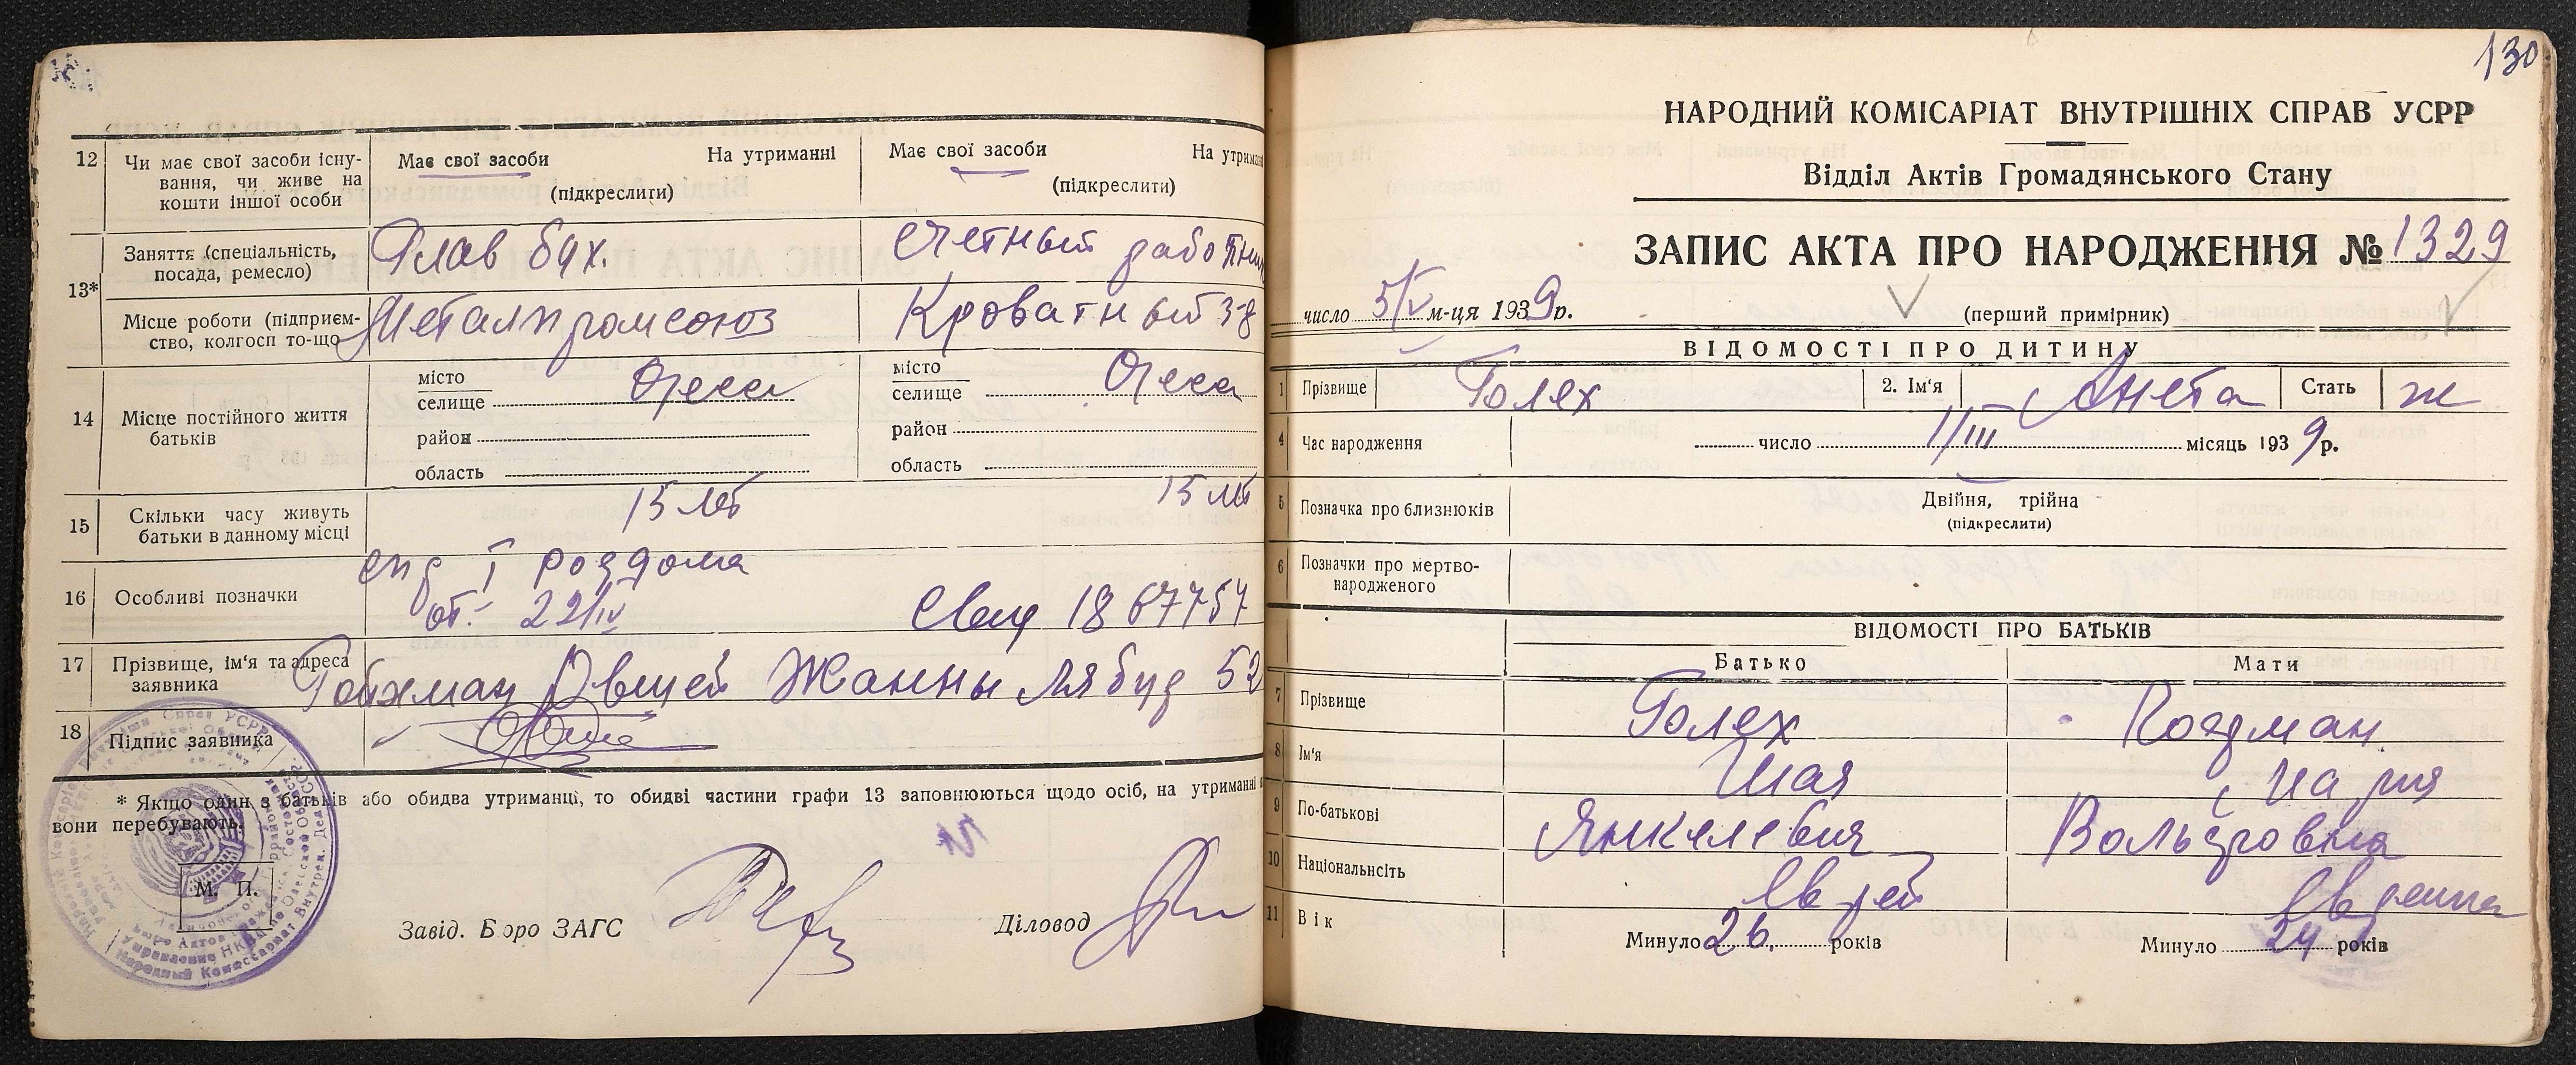 12 Чи має свої засоби існу-
вання, чи живе на
кошти іншої особи
Має свої засоби На утриманні
(підкреслити)
Має свої засоби На утриман
(підкреслити)
13*
Заняття (спеціальність,
посада, ремесло)
Глав бух.
Счетный работник
Місце роботи (підприєм-
ство, колгосп то-що
Металпромсоюз
Кроватный з-д
14 Місце постійного життя
батьків
місто
селище Одесса
район
область
місто
селище Одесса
район
область
15 Скільки часу живуть
батьки в данному місці
15 лет
15 лет
16 Особливі позначки
І роддома
от. 22/IV
Свид 1867757
17 Прізвище, ім'я та адреса
заявника
Гойхман Овшей Жанны Лябур 52
18 Підпис заявника
* Якщо один з батьків або обидва утриманці, то обидві частини графи 13 заповнюються щодо осіб, на утриманні
вони перебувають.
М. П.
Завід. Бюро ЗАГС
Діловод
130
НАРОДНИЙ КОМІСАРІАТ ВНУТРІШНІХ СПРАВ УСРР
Відділ Актів Громадянського Стану
ЗАПИС АКТА ПРО НАРОДЖЕННЯ № 1329
число 5/V м-ця 1939р.
(перший примірник)
ВІДОМОСТІ ПРО ДИТИНУ
1 Прізвище Голех 2. Ім'я Анета Стать ж
4 Час народження число 1/III місяць 1939р.
5 Позначка про близнюків Двійня, трійна
(підкреслити)
6 Позначки про мертво-
народженого
ВІДОМОСТІ ПРО БАТЬКІВ
Батько Мати
7 Прізвище Голех
8 Ім'я Шая Мария
9 По-батькові Янкелевич Вольфовна
10 Національність Еврей Еврейка
11 Вік Минуло 26. років Минуло 24 років